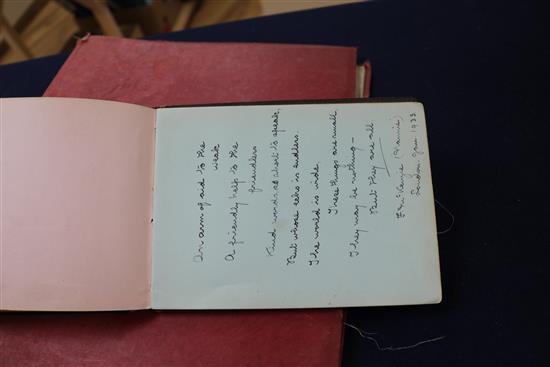 An arm of aid to the
weak
A friendly help to the
friendless
Kind words so short to speak,
But whose echo is endless.
The world is wide.
These things are small
They may be nothing –
But they are all
McKenzie
London Jan 1933